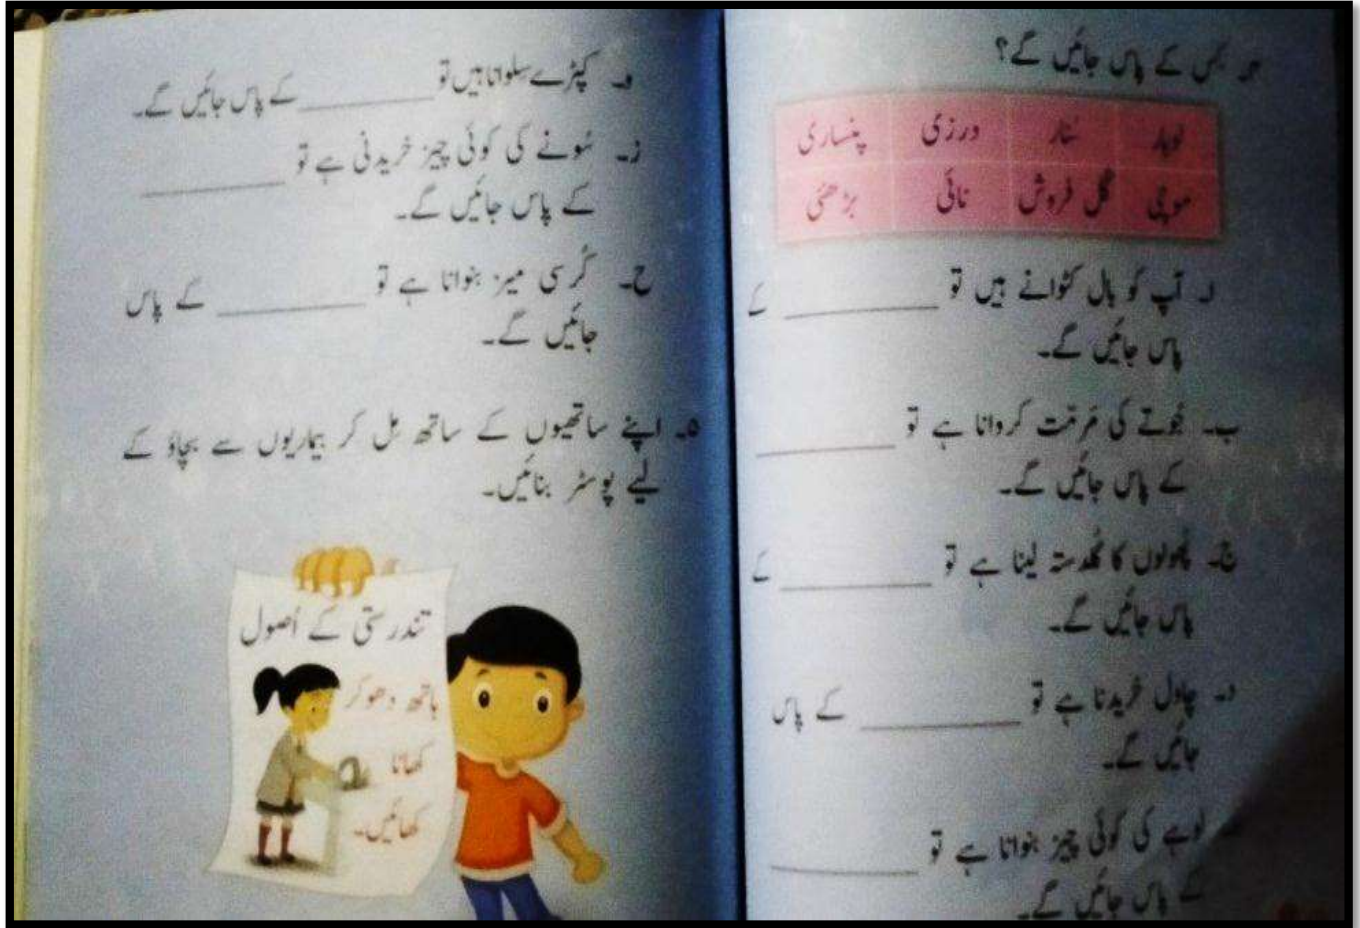 کس کے پاس جائیں گے؟
لوہار سُنار درزی پنساری
موچی گُل فروش نائی بڑھئی
ا۔ آپ کو بال کٹوانے ہیں تو ________ کے
پاس جائیں گے۔
ب۔ جُوتے کی مَرمّت کروانا ہے تو ________
کے پاس جائیں گے۔
ج۔ پُھولوں کا گُلدستہ لینا ہے تو ________ کے
پاس جائیں گے۔
د۔ چاول خریدنا ہے تو ________ کے پاس
جائیں گے۔
لوہے کی کوئی چیز بنوانا ہے تو ________
کے پاس جائیں گے۔
و۔ کپڑے سِلوانا ہیں تو ________ کے پاس جائیں گے۔
ز۔ سُونے کی کوئی چیز خریدنی ہے تو ________
کے پاس جائیں گے۔
ح۔ کُرسی میز بنوانا ہے تو ________ کے پاس
جائیں گے۔
۵۔ اپنے ساتھیوں کے ساتھ مِل کر بیماریوں سے بچاؤ کے
لیے پوسٹر بنائیں۔
تندرستی کے اُصول
ہاتھ دھوکر
کھانا
کھائیں۔